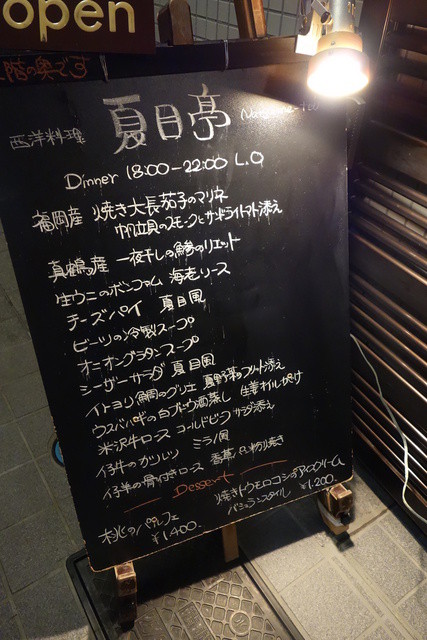 open
階の奥です
西洋料理 夏目亭
Dinner 18:00-22:00 L.O
福岡産 焼き大長茄子のマリネ
帆立貝のスモークとサンドライトマト添え
真鶴産 一夜干しの鯵のリエット
生ウニのボンファム 海老ソース
チーズパイ 夏目風
ビーツの冷製スープ
オニオングラタンスープ
シーザーサラダ 夏目風
イトヨリ鯛のグリエ 夏野菜のフリット添え
ウスバハギの白ブドウ酒蒸し 生姜オイルがけ
米沢牛ロース コールドビーフ サラダ添え
仔牛のカツレツ ミラノ風
仔羊の骨付きロース 香草パン粉焼き
Dessert
桃のパルフェ
¥1,400.
焼きトウモロコシのアイスクリーム
¥1,200.